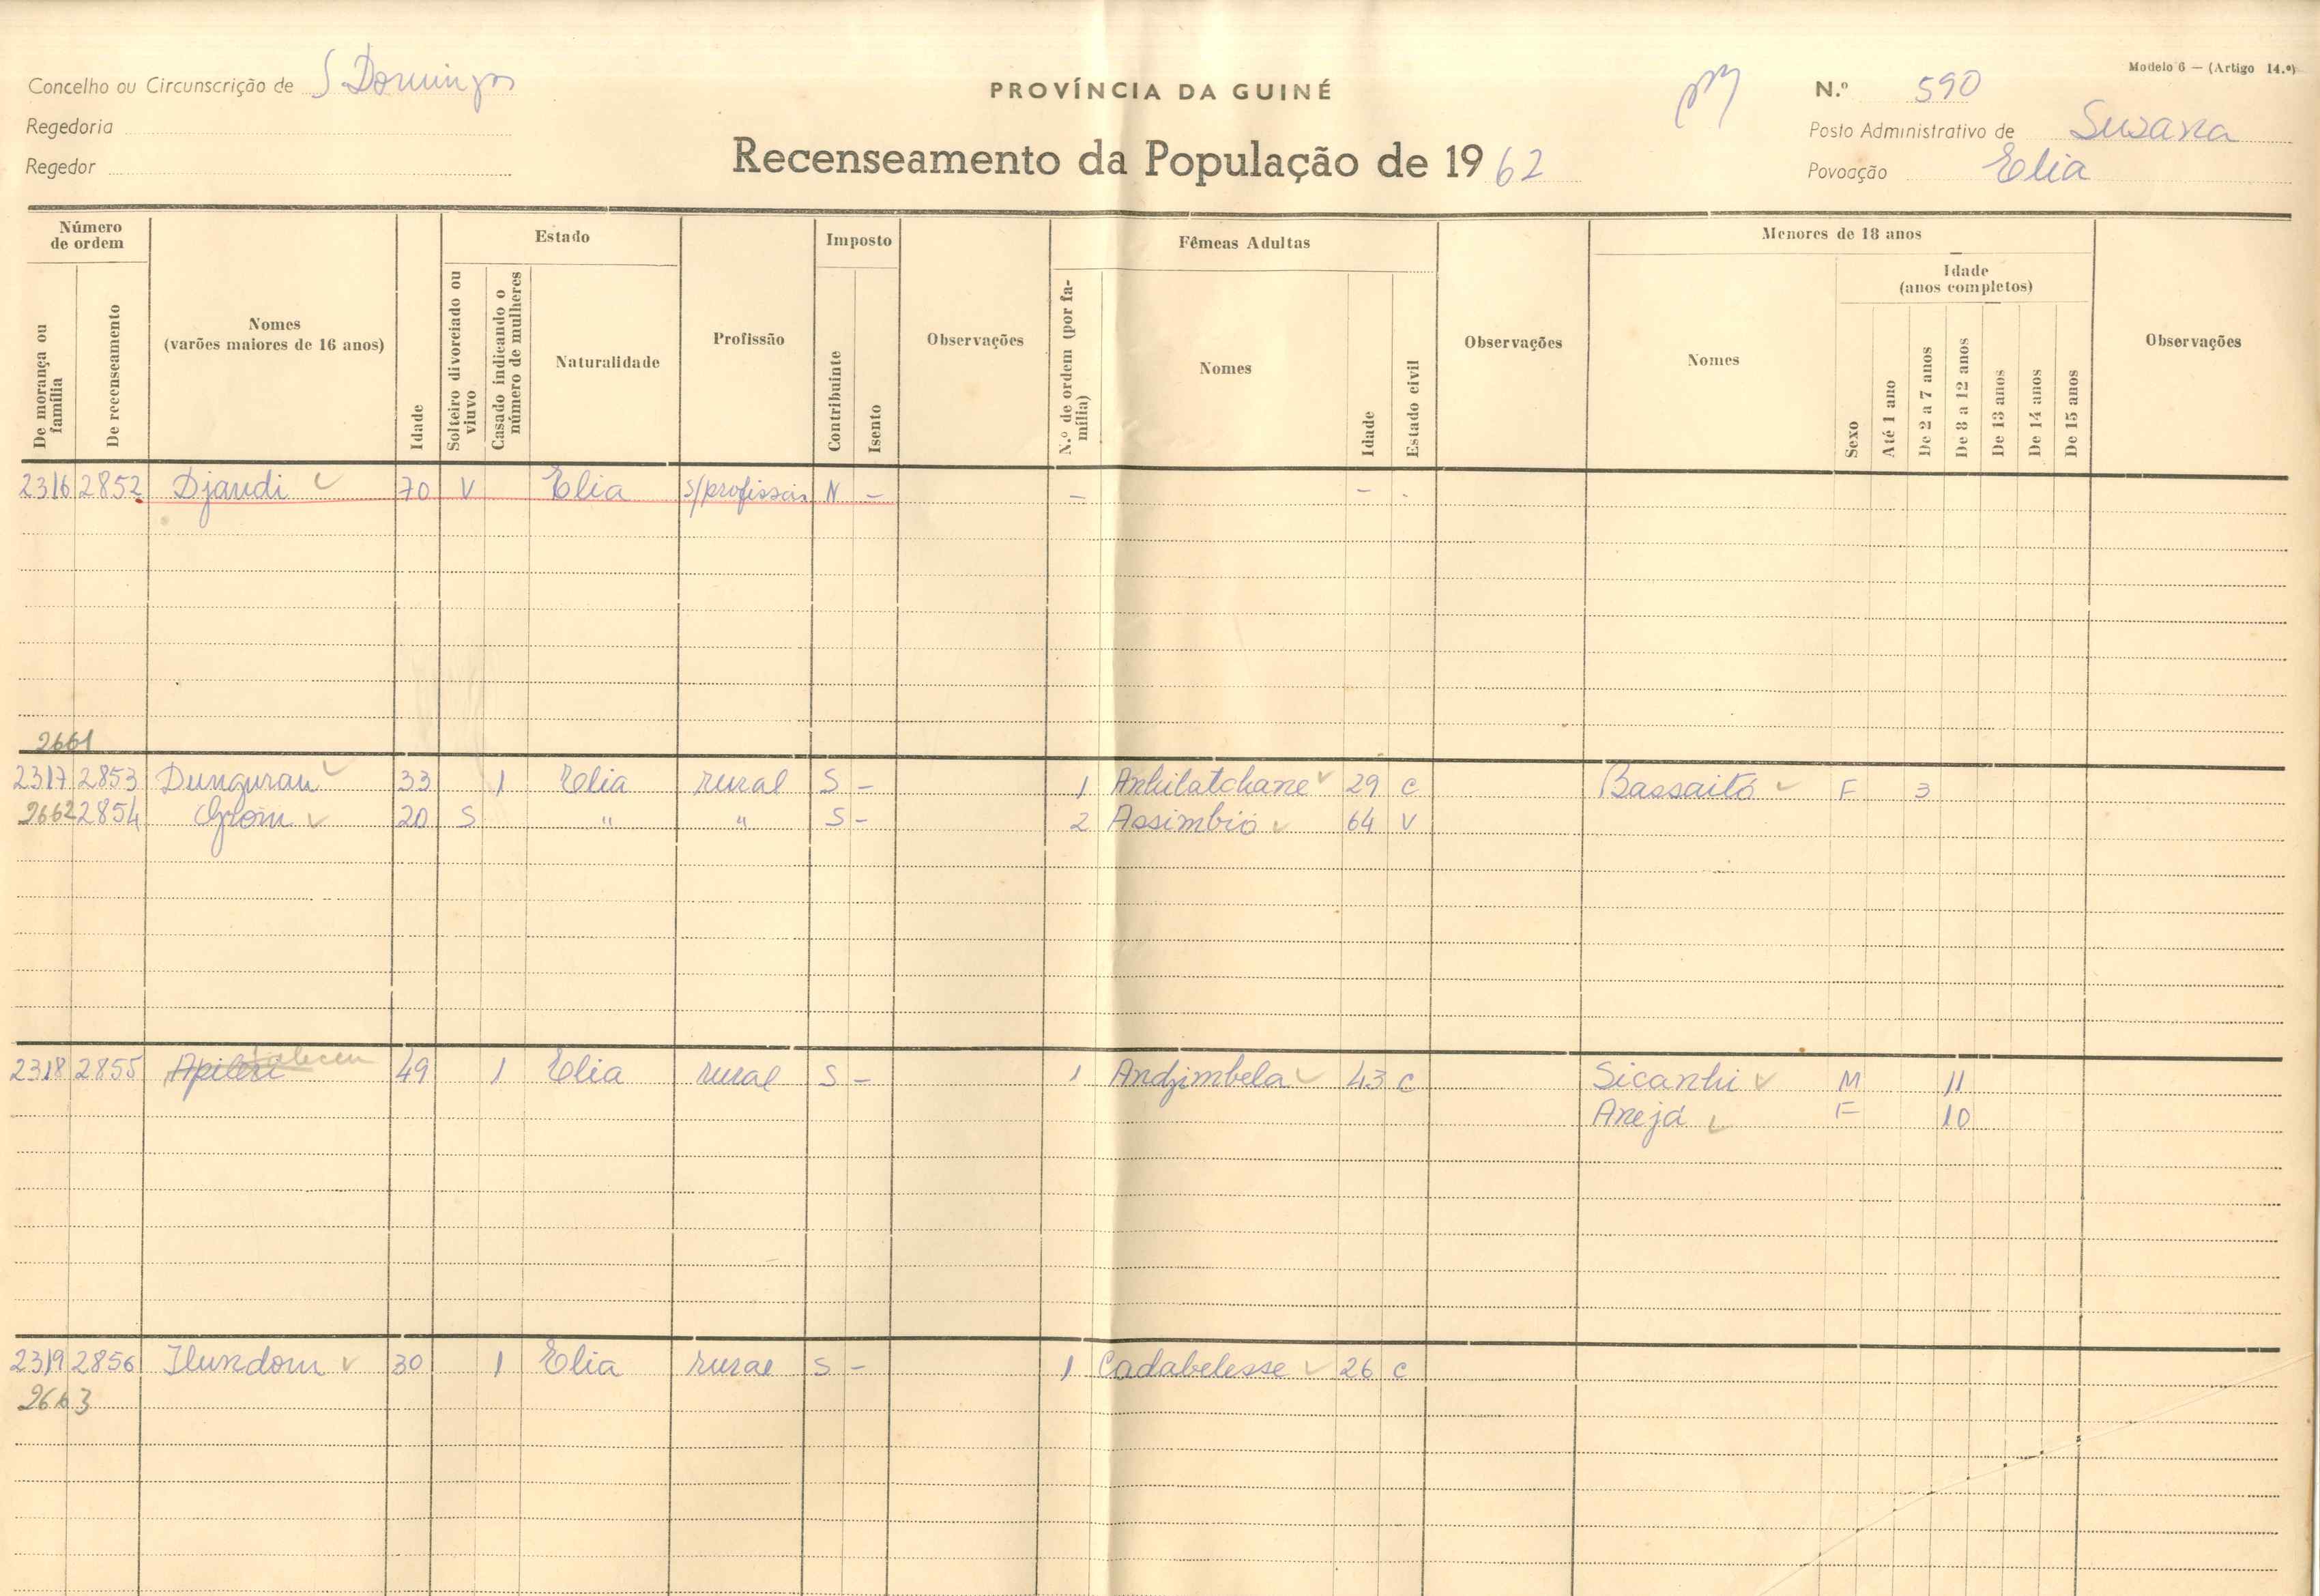 Modelo 6 — (Artigo 14.º)
Concelho ou Circunscrição de S Domingos
PROVÍNCIA DA GUINÉ
N.º 590
Regedoria
Posto Administrativo de Susana
Regedor
Recenseamento da População de 1962
Povoação Elia
Número de ordem
De morança ou família
De recenseamento
Nomes (varões maiores de 16 anos)
Idade
Estado
Solteiro divorciado ou viuvo
Casado indicando o número de mulheres
Naturalidade
Profissão
Imposto
Contribuinte
Isento
Observações
Fêmeas Adultas
N.º de ordem (por família)
Nomes
Idade
Estado civil
Observações
Menores de 18 anos
Nomes
Sexo
Idade (anos completos)
Até 1 ano
De 2 a 7 anos
De 8 a 12 anos
De 13 anos
De 14 anos
De 15 anos
Observações
2316 2852 Djaudi 70 V Elia s/profissão N — — — -
2661
2317 2853 Dunguran 33 1 Elia rural S — 1 Anhilatchane 29 c Bassaitó F 3
2662 2854 20 S " " S — 2 Assimbió 64 V
2318 2855 Apileri 49 1 Elia rural S — 1 Andjimbela 43 c Sicanhi M 11
Anejá F 10
2319 2856 Ilundom 30 1 Elia rural S — 1 Cadabelesse 26 c
2663